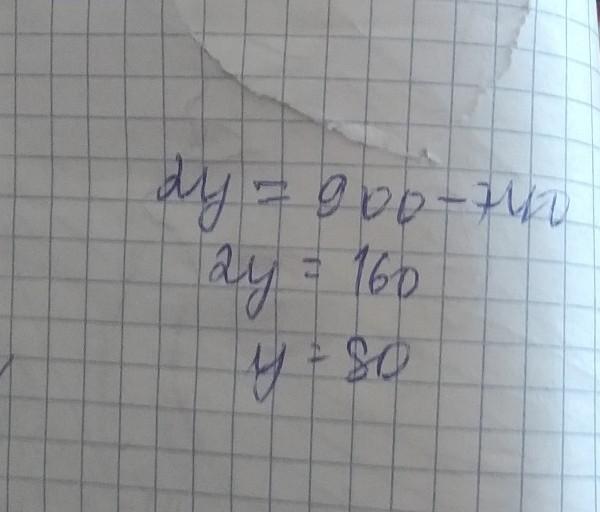 2y = 900 - 740
2y = 160
y = 80